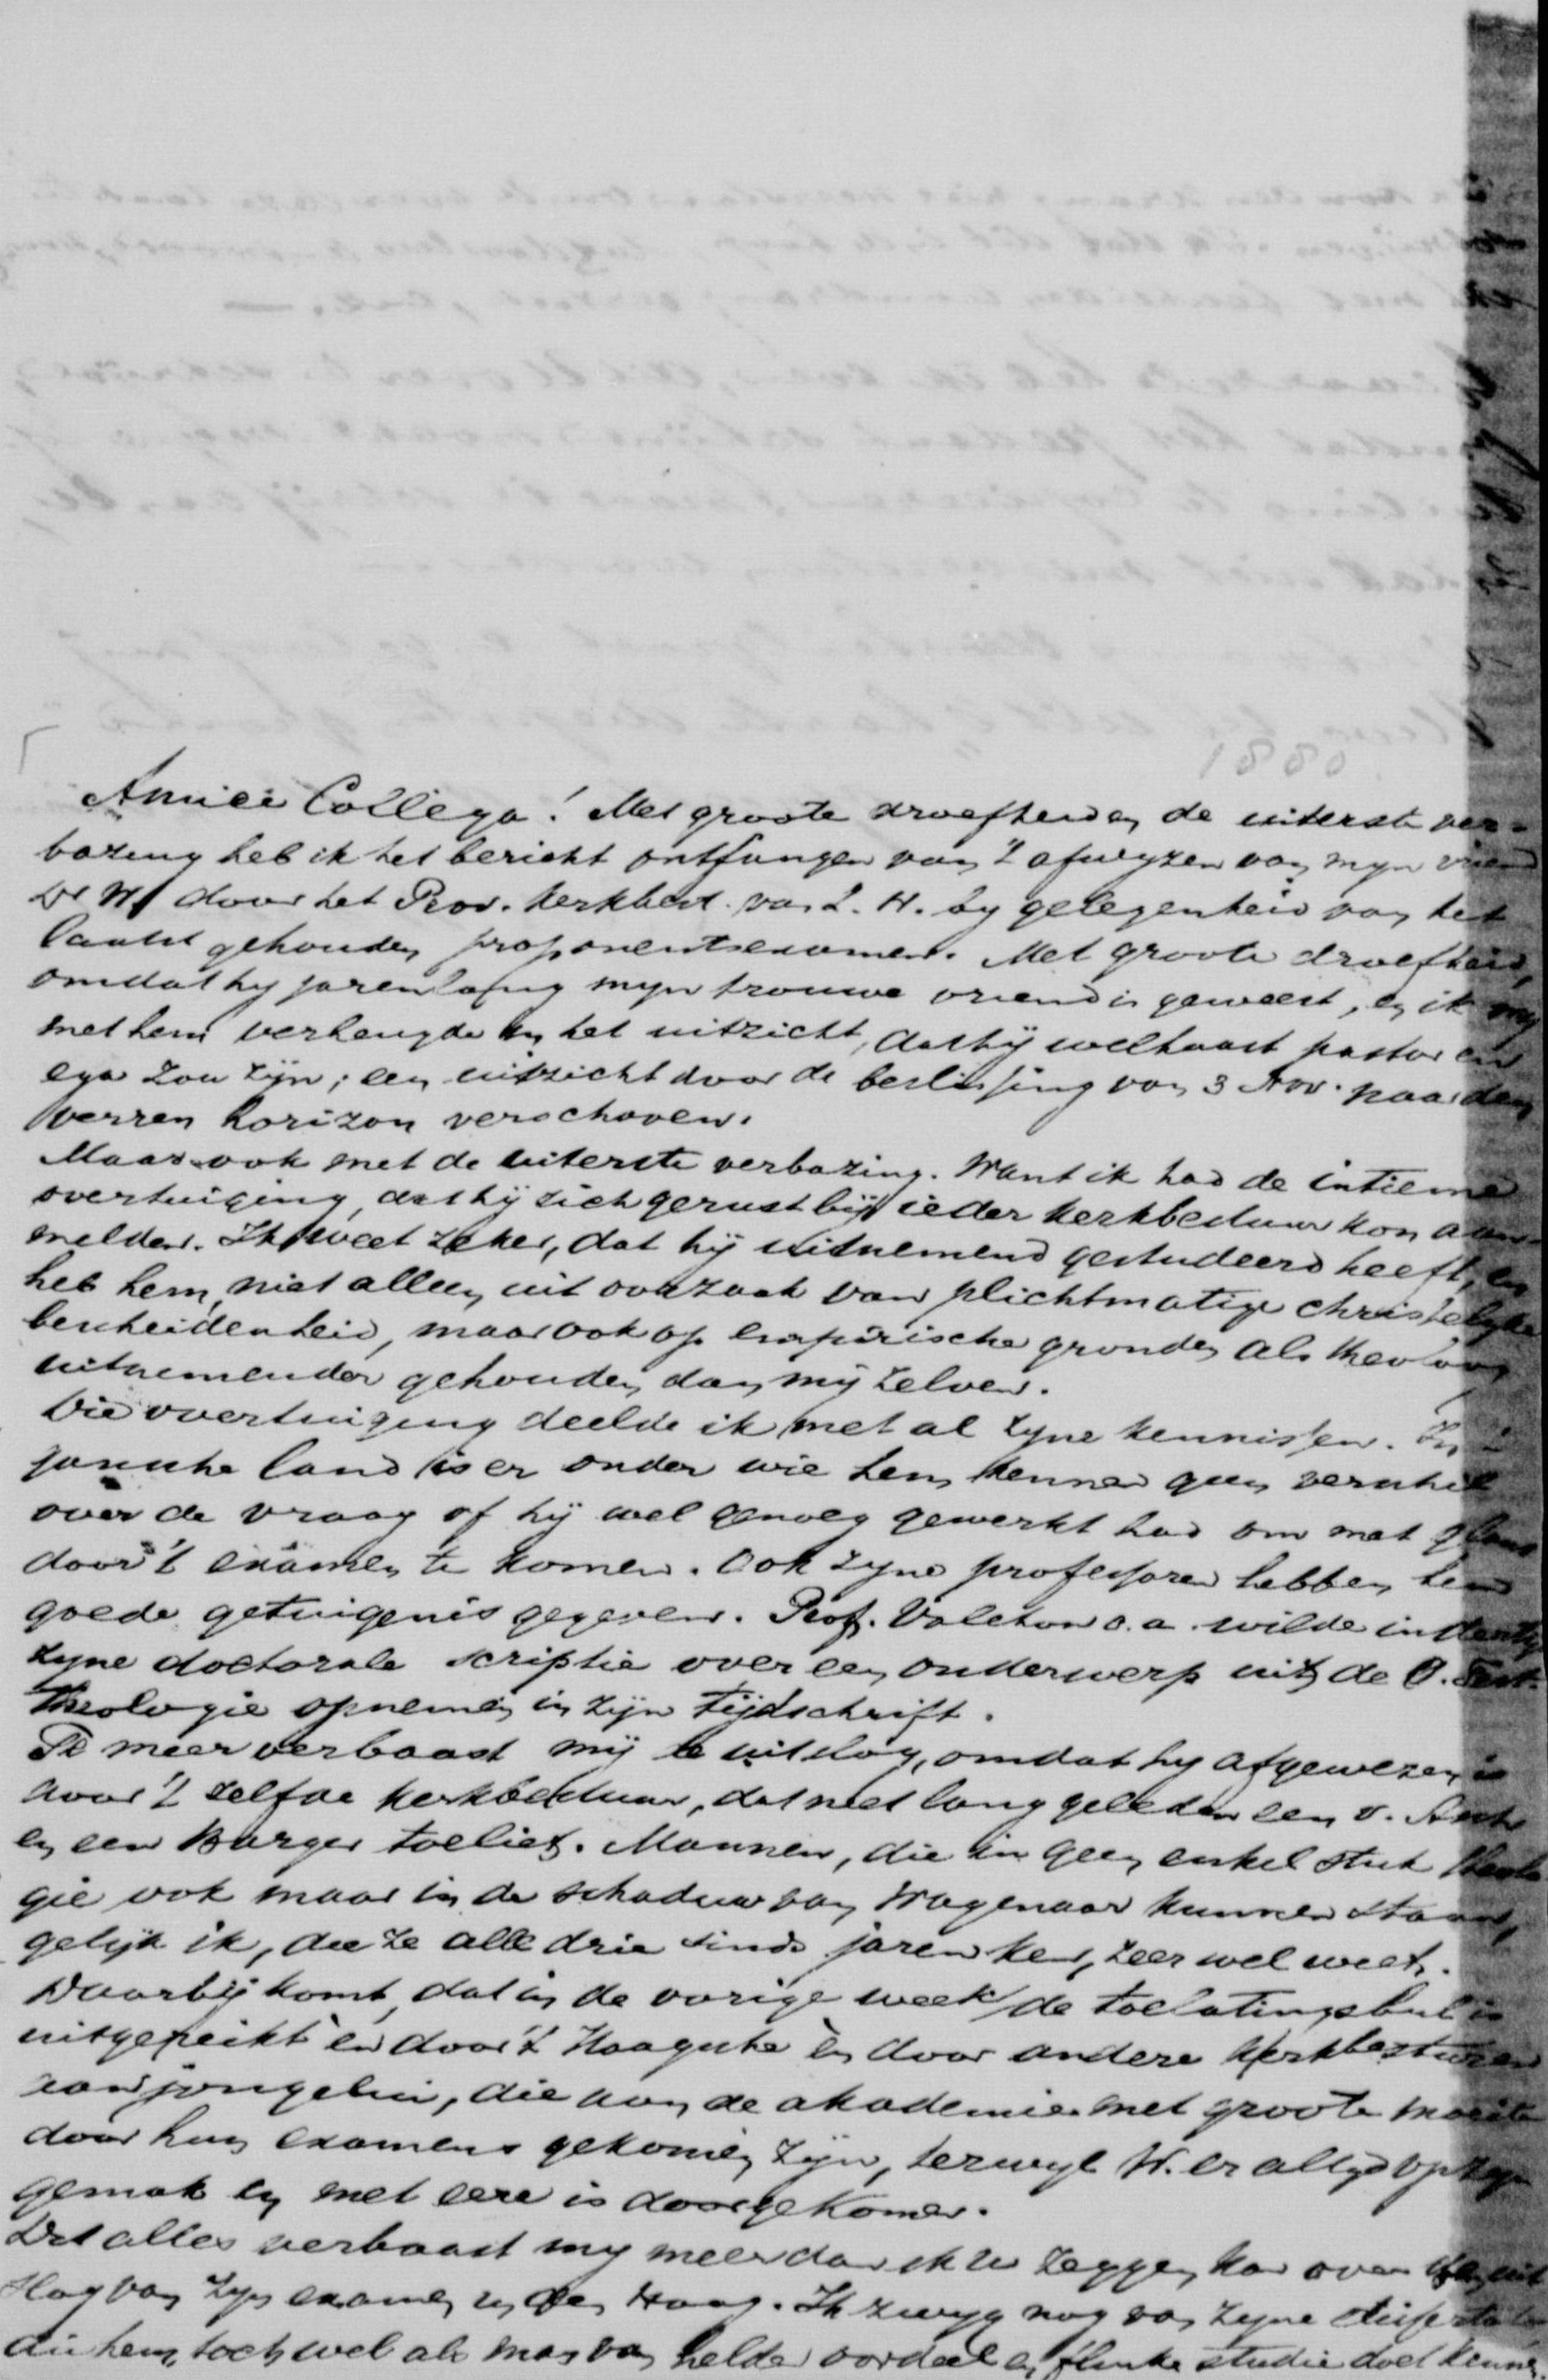 1880
Amice Collega! Met groote droefheid en de uiterste ver-
bazing heb ik het bericht ontfangen van 't afwyzen van myn vriend
Dr W door het Prov. Kerkbest. van Z. H. by gelegenheid van het
laatst gehouden proponentsexamen. Met groote droefheid,
omdat hy jarenlang myn trouwe vriend is geweest, en ik my
met hem verheugde in het uitzicht, dat hij welhaast pastor en
ega zou zijn; een uitzicht door de beslissing van 3 Nov. naar den
verren horizon verschoven.
Maar ook met de uiterste verbazing. Want ik had de intieme
overtuiging, dat hij zich gerust bij ieder kerkbestuur kon aan-
melden. Ik weet zeker, dat hij uitnemend gestudeerd heeft, en
heb hem, niet alleen uit oorzaak van plichtmatige christelyke
bescheidenheid, maar ook op empirische gronden als theoloog
uitnemender gehouden dan mij zelven.
Die overtuiging deelde ik met al zyne kennissen. In 't
gansche land is er onder wie hem kennen geen verschil
over de vraag of hij wel genoeg gewerkt had om met glans
door 't examen te komen. Ook zyne professoren hebben hem
goede getuigenis gegeven. Prof. Valeton o.a. wilde indertijd
zyne doctorale scriptie over een onderwerp uit de O. Test.
Theologie opnemen in zijn Tijdschrift.
Te meer verbaast mij de uitslag, omdat hy afgewezen is
door 't zelfde kerkbestuur, dat niet lang geleden een v.
en een Barger toeliet. Mannen, die in geen enkel stuk theolo
gie ook maar in de schaduw van Wagenaar kunnen staan,
gelijk ik, die ze alle drie sinds jaren ken, zeer wel weet.
Daarbij komt, dat in de vorige week de toelatingsbul is
uitgereikt èn door 't Haagsche èn door andere kerkbesturen
aan jongelui, die aan de akademie met groote moeite
door hun examens gekomen zijn, terwyl W. er altyd op zyn
gemak en met eere is doorgekomen.
Dit alles verbaast my meer dan ik u zeggen kan over den uit
slag van zyn examen in den Haag. Ik zwyg nog van zyne dissertatie
die hem toch wel als man van helder oordeel en flinke studie doet kennen